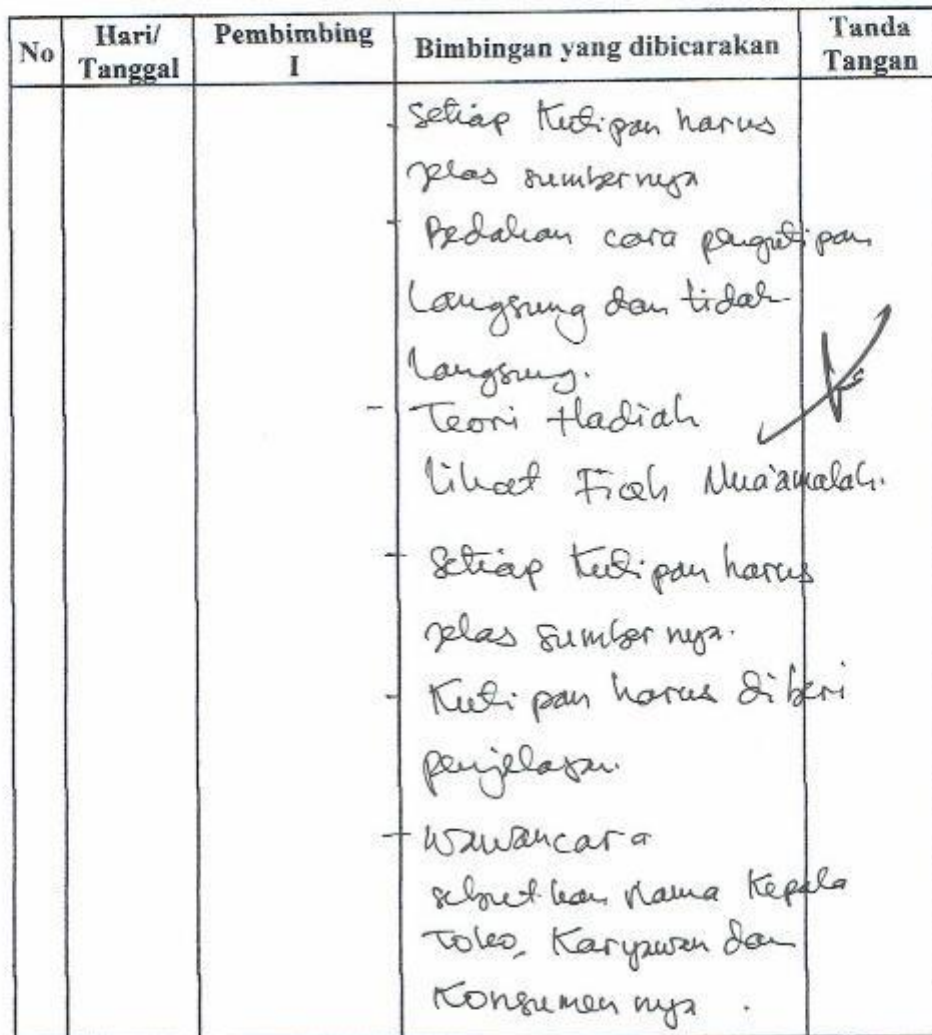 No Hari/ Tanggal Pembimbing I Bimbingan yang dibicarakan Tanda Tangan
- Setiap Kutipan harus
jelas sumbernya
- Bedakan cara pengutipan
langsung dan tidak
langsung.
- Teori Hadiah
lihat Fiqh Mua'amalah.
- Setiap Kutipan harus
jelas sumber nya.
- Kutipan harus diberi
penjelasan.
- Wawancara
sebutkan nama Kepala
Toko, Karyawan dan
Konsumen nya .